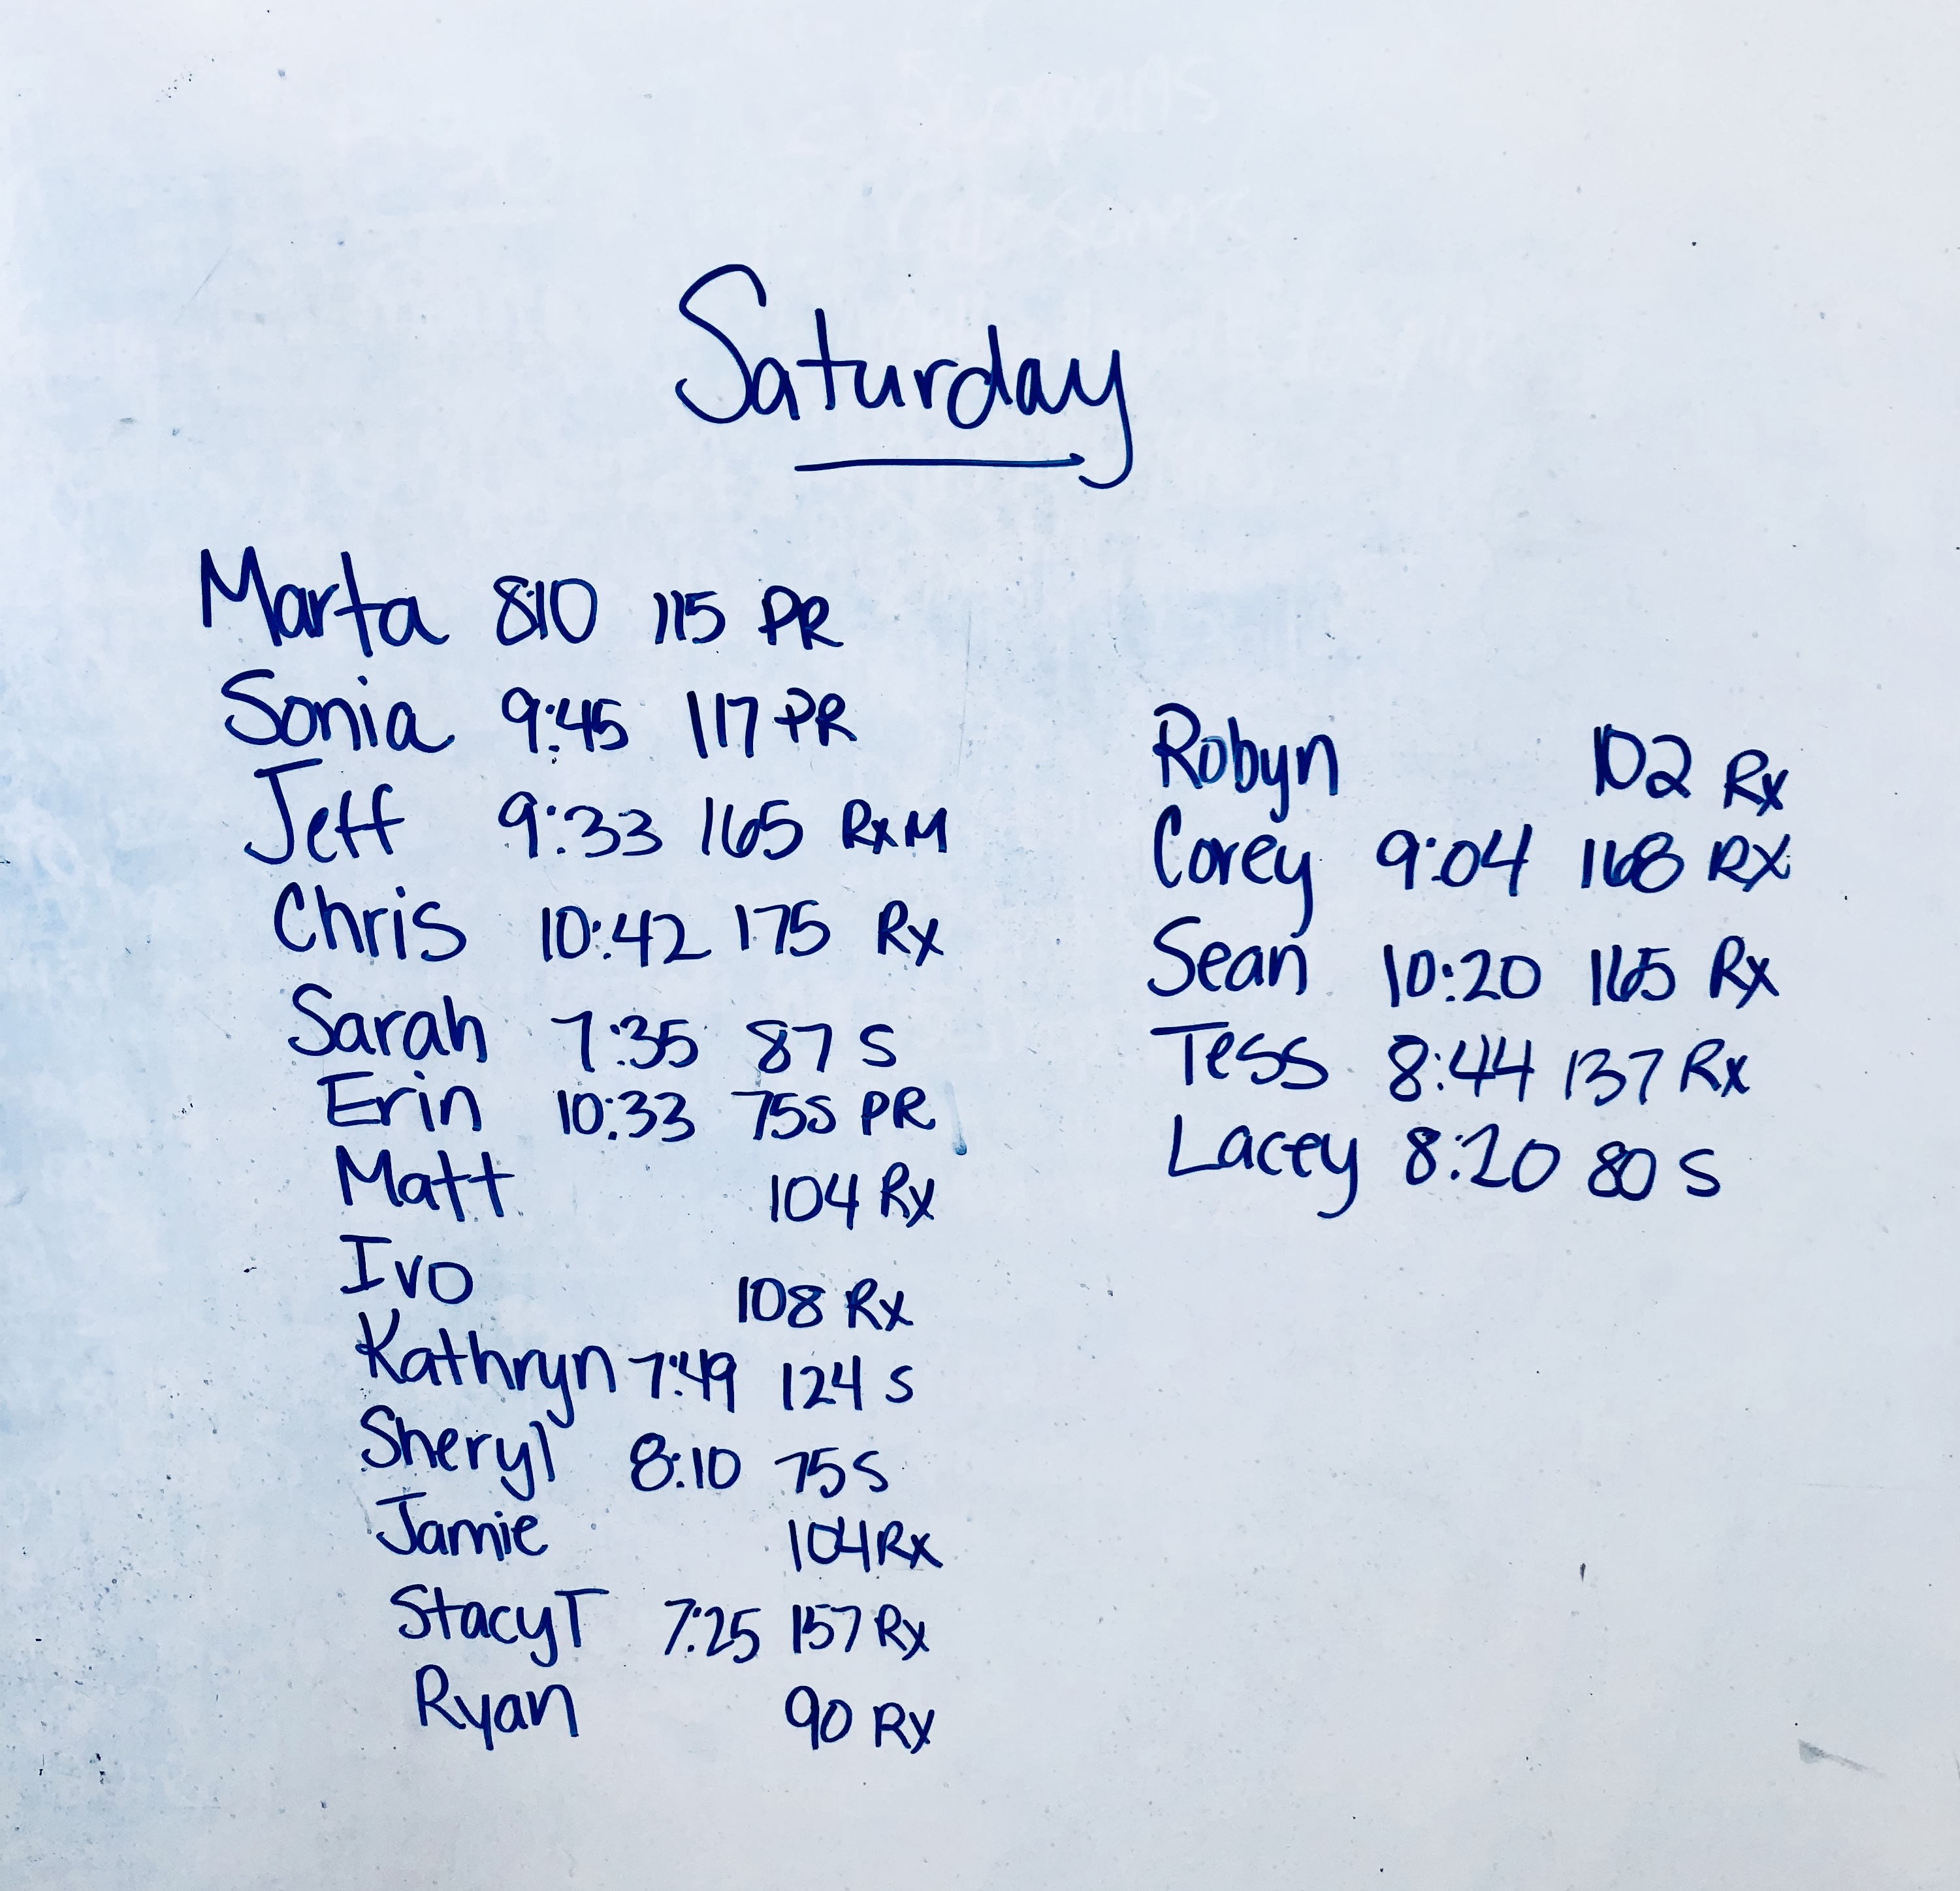 Saturday
Marta 8:10 115 PR
Sonia 9:45 117 PR
Jeff 9:33 165 RxM
Chris 10:42 175 Rx
Sarah 7:35 87 S
Erin 10:33 75S PR
Matt 104 Rx
Ivo 108 Rx
Kathryn 7:49 124 S
Sheryl 8:10 75 S
Jamie 104 Rx
Stacy T 7:25 157 Rx
Ryan 90 Rx
Robyn 102 Rx
Corey 9:04 168 RX
Sean 10:20 165 Rx
Tess 8:44 137 Rx
Lacey 8:20 80 S